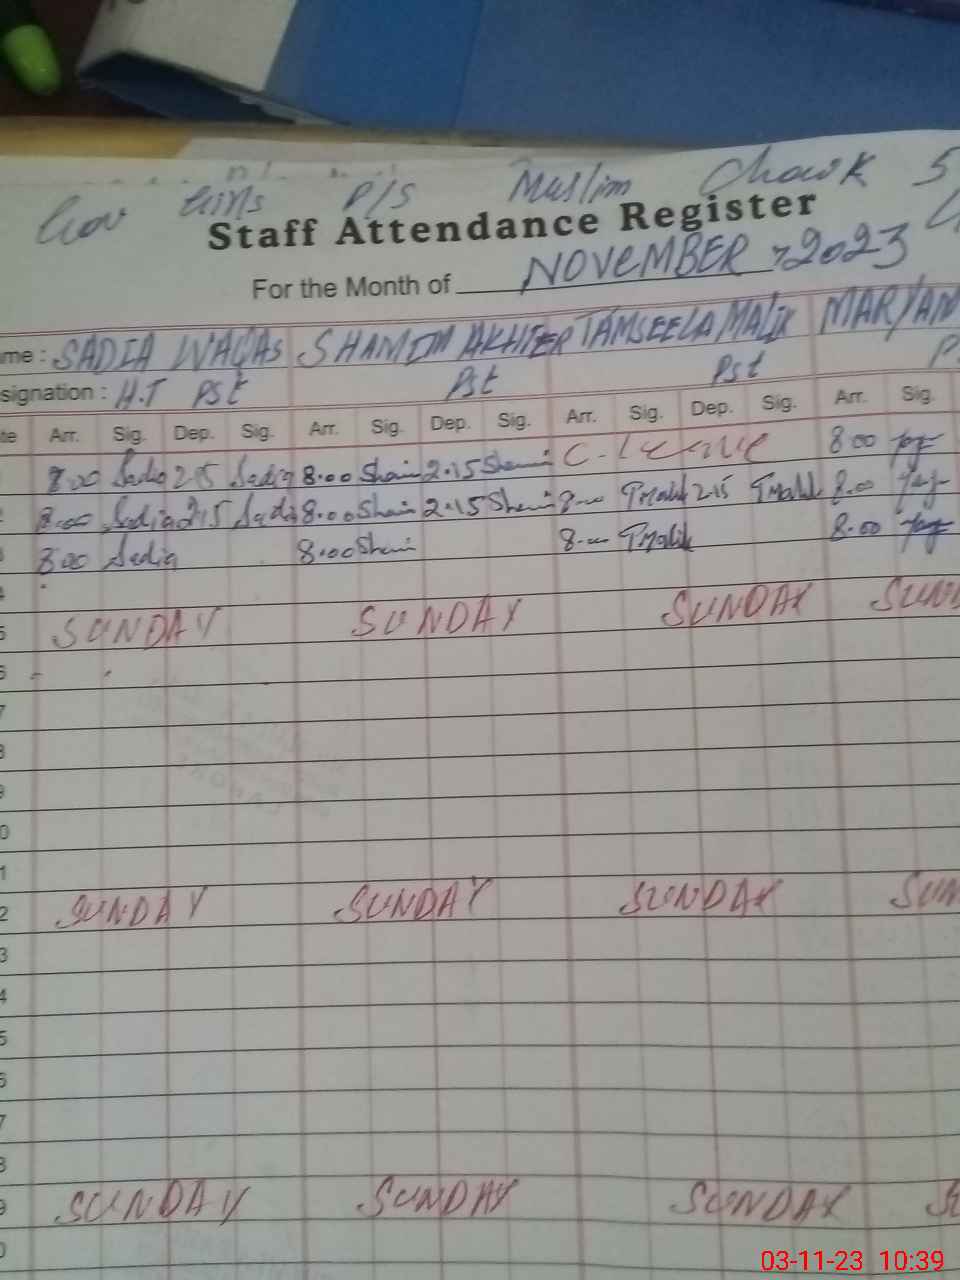 Gov Girls P/S Muslim Chowk 5
Staff Attendance Register
For the Month of NOVEMBER, 2023
me : SADIA WAQAS SHAMIM AKHTER TAMSEELA MALIK MARYAM
signation : H.T PSt Pst Pst P
te Arr. Sig. Dep. Sig. Arr. Sig. Dep. Sig. Arr. Sig. Dep. Sig. Arr. Sig.
8.00 Sadia 2.15 Sadia 8.00 Sham 2.15 Shami C-Leave 8.00
8.00 Sadia 2.15 Sadia 8.00 Sham 2.15 Shami 8.00 TMalik 2.15 TMalik 8.00
8.00 Sadia 8.00 Sham 8.00 TMalik 8.00
SUNDAY SUNDAY SUNDAY SUN
6
7
8
9
0
1
2 SUNDAY SUNDAY SUNDAY SUN
3
4
5
6
7
8
9 SUNDAY SUNDAY SUNDAY S
0
03-11-23 10:39